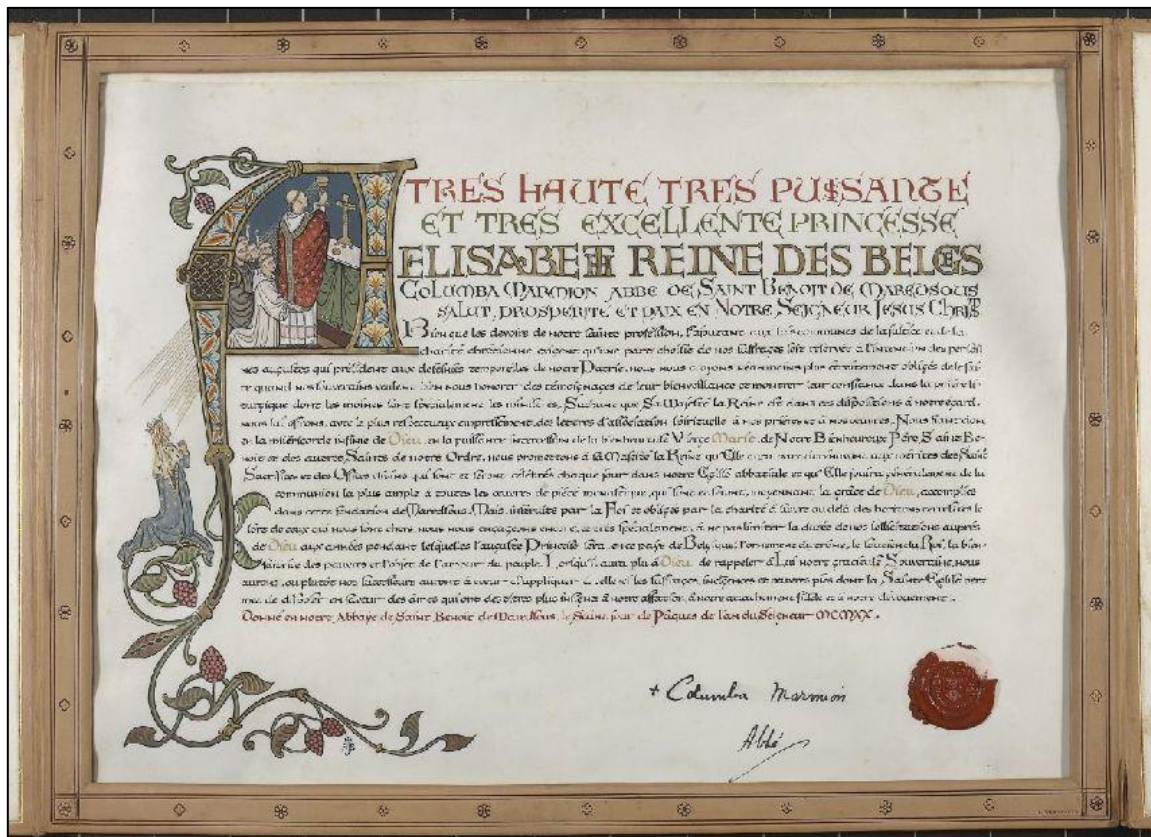 A TRES HAUTE TRES PUISSANTE
ET TRES EXCELLENTE PRINCESSE
ELISABETH REINE DES BELGES
COLUMBA MARMION ABBE DE SAINT BENOIT DE MAREDSOUS
SALUT, PROSPERITE ET PAIX EN NOTRE SEIGNEUR JESUS CHRIST
Bien que les devoirs de notre sainte profession, s'ajoutant aux lois communes de la justice et de la
charité chrétienne exigent qu'une part choisie de nos suffrages soit réservée à l'intention des person
nes augustes qui président aux destinées temporelles de notre Patrie, nous nous croyons néanmoins plus étroitement obligés de le fai
re quand nos souverains veulent bien nous honorer des témoignages de leur bienveillance et montrer leur confiance dans la prière li
turgique dont les moines sont spécialement les ministres. Sachant que Sa Majesté la Reine est dans ces dispositions à notre égard,
nous lui offrons, avec le plus respectueux empressement, des lettres d'association spirituelle à nos prières et à nos œuvres. Nous
en la miséricorde infinie de Dieu, en la puissante intercession de la bienheureuse Vierge Marie, de Notre Bienheureux Père, Saint Be
noit et des autres Saints de notre Ordre, nous promettons à Sa Majesté la Reine qu'Elle aura part aux mérites des Saints
Sacrifices et des Offices divins qui sont et seront célébrés chaque jour dans notre Eglise abbatiale et qu'Elle jouira généralement de la
communion la plus ample à toutes les œuvres de piété monastique, qui sont et seront, moyennant la grâce de Dieu, accomplies
dans cette fondation de Maredsous. Mais, instruits par la Foi et obligés par la charité à suivre au delà des horizons terrestres le
sort de ceux qui nous sont chers, nous nous engageons encore, et très spécialement, à ne pas limiter la durée de nos sollicitations auprès
de Dieu aux années pendant lesquelles l'auguste Princesse sera, en ce pays de Belgique, l'ornement du trône, le soutien du Roi, la bien
faitrice des pauvres et l'objet de l'amour du peuple. Lorsqu'il aura plu à Dieu de rappeler à Lui notre gracieuse Souveraine, nous
aurons, ou plutôt nos successeurs auront à cœur d'appliquer à celle-ci les suffrages, indulgences et œuvres pies dont la Sainte Eglise per
met de disposer en faveur des âmes qui ont des titres plus insignes à notre affection, à notre attachement fidèle et à notre dévouement.
Donné en notre Abbaye de Saint Benoit de Maredsous, le Saint jour de Pâques de l'an du Seigneur MCMXX.
+ Columba Marmion
Abbé